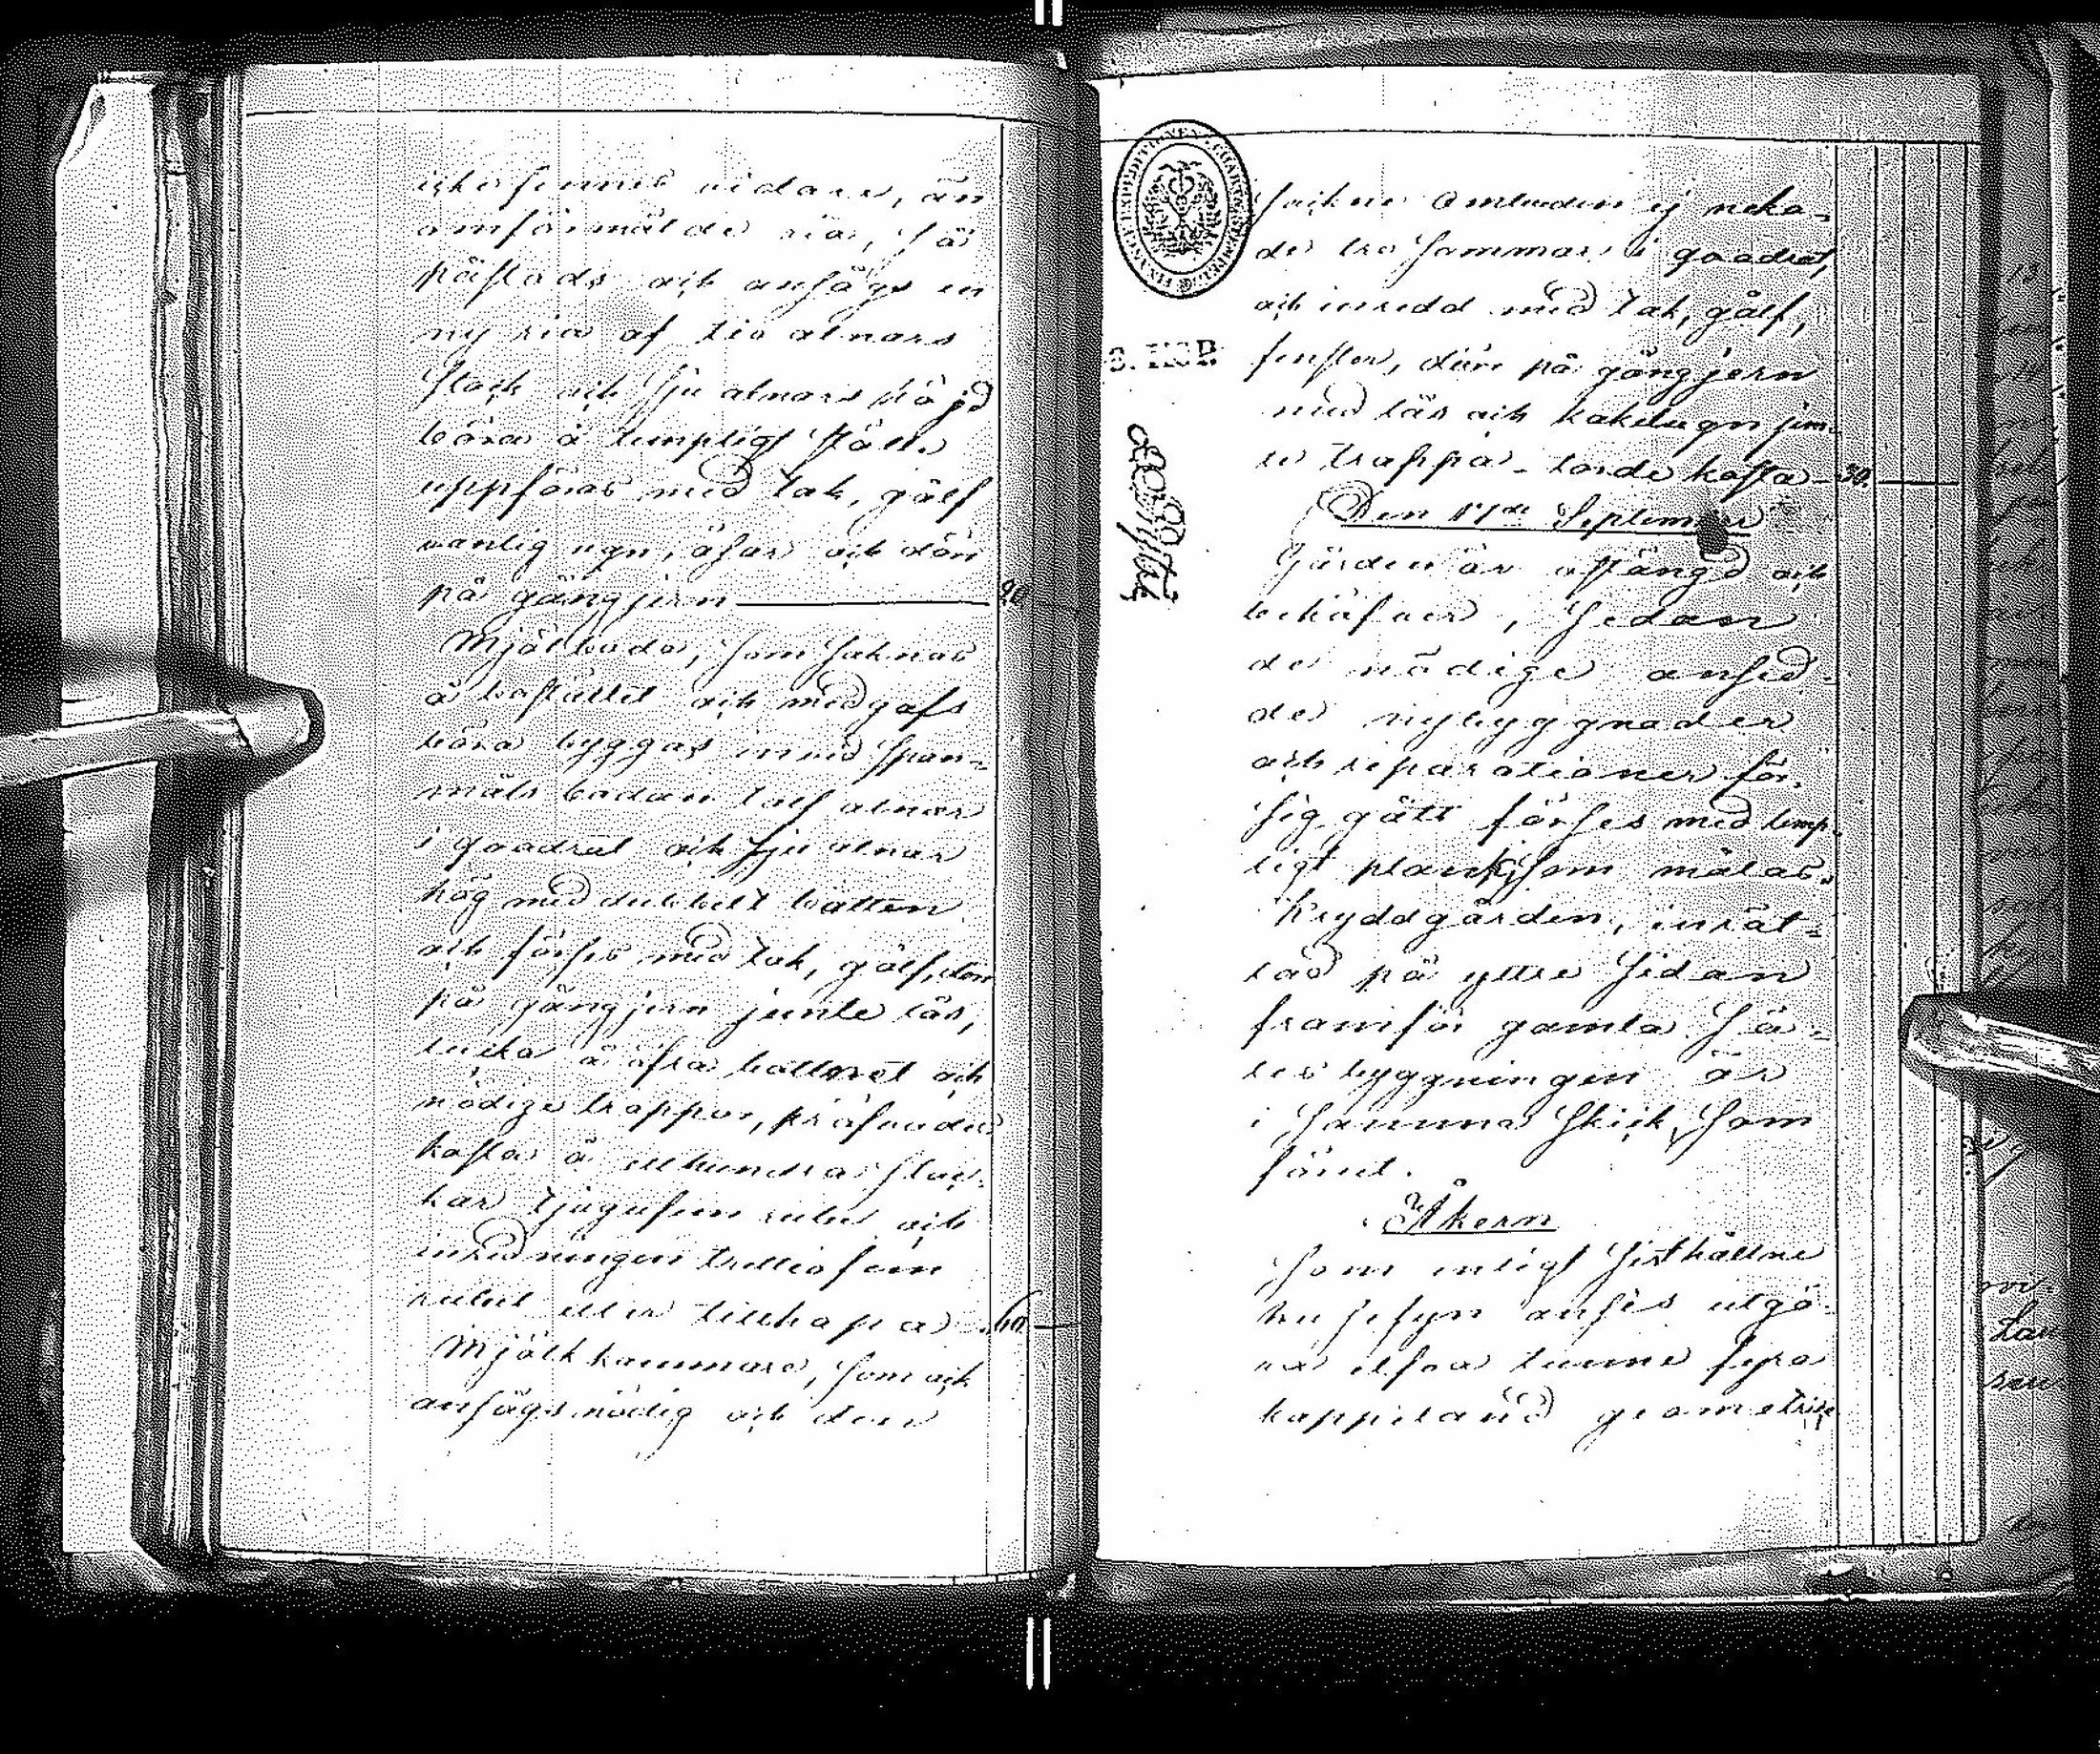 icke finnes vidare, än
omförmälde ria, så
påstods och ansågs en
ny ria af tio alnars
stock och sju alnars höjd
böra å lämpligt ställe
uppföras med tak, golf
vanlig ugn, åsar och dörr
på gångjern 90
Mjölboda, som saknas
å bostället och medgafs
böra byggas invid span-
måls bodan tolf alnar
i quadrat och sju alnar
hög med dubbelt botten
och förses med tak, golf, dörr
på gångjern jemte lås,
lucka å öfra bottnet och
nödige trappor, pröfvades
kosta å etthundra stoc-
kar tjugufem rubel och
inredningen trettiofem
rubel eller tillhopa 60
Mjölkkammare, som och
ansågs nödig och den
fullmägtig
S. KOP.
svarne Ombuden ej neka-
de tro sammar i quadrat,
och inredd med tak, golf,
fenster, dörr på gångjern
med lås och kakelugn jem-
te trappa torde kosta 30.
Den 17de September
Gården är ostängd och
behöfver, sedan
de nödige ansed-
de nybyggnader
och reparationer för-
sig gått förses med lämp-
ligt plank, som målas.
Kryddgården, inrät-
tad på yttre sidan
framför gamla Sä-
tesbyggningen är
i samma skick, som
förut.
Åkern
som enligt sisthållne
husesyn anses utgö-
ra elfva tunne fyra
kappeland geometrisk